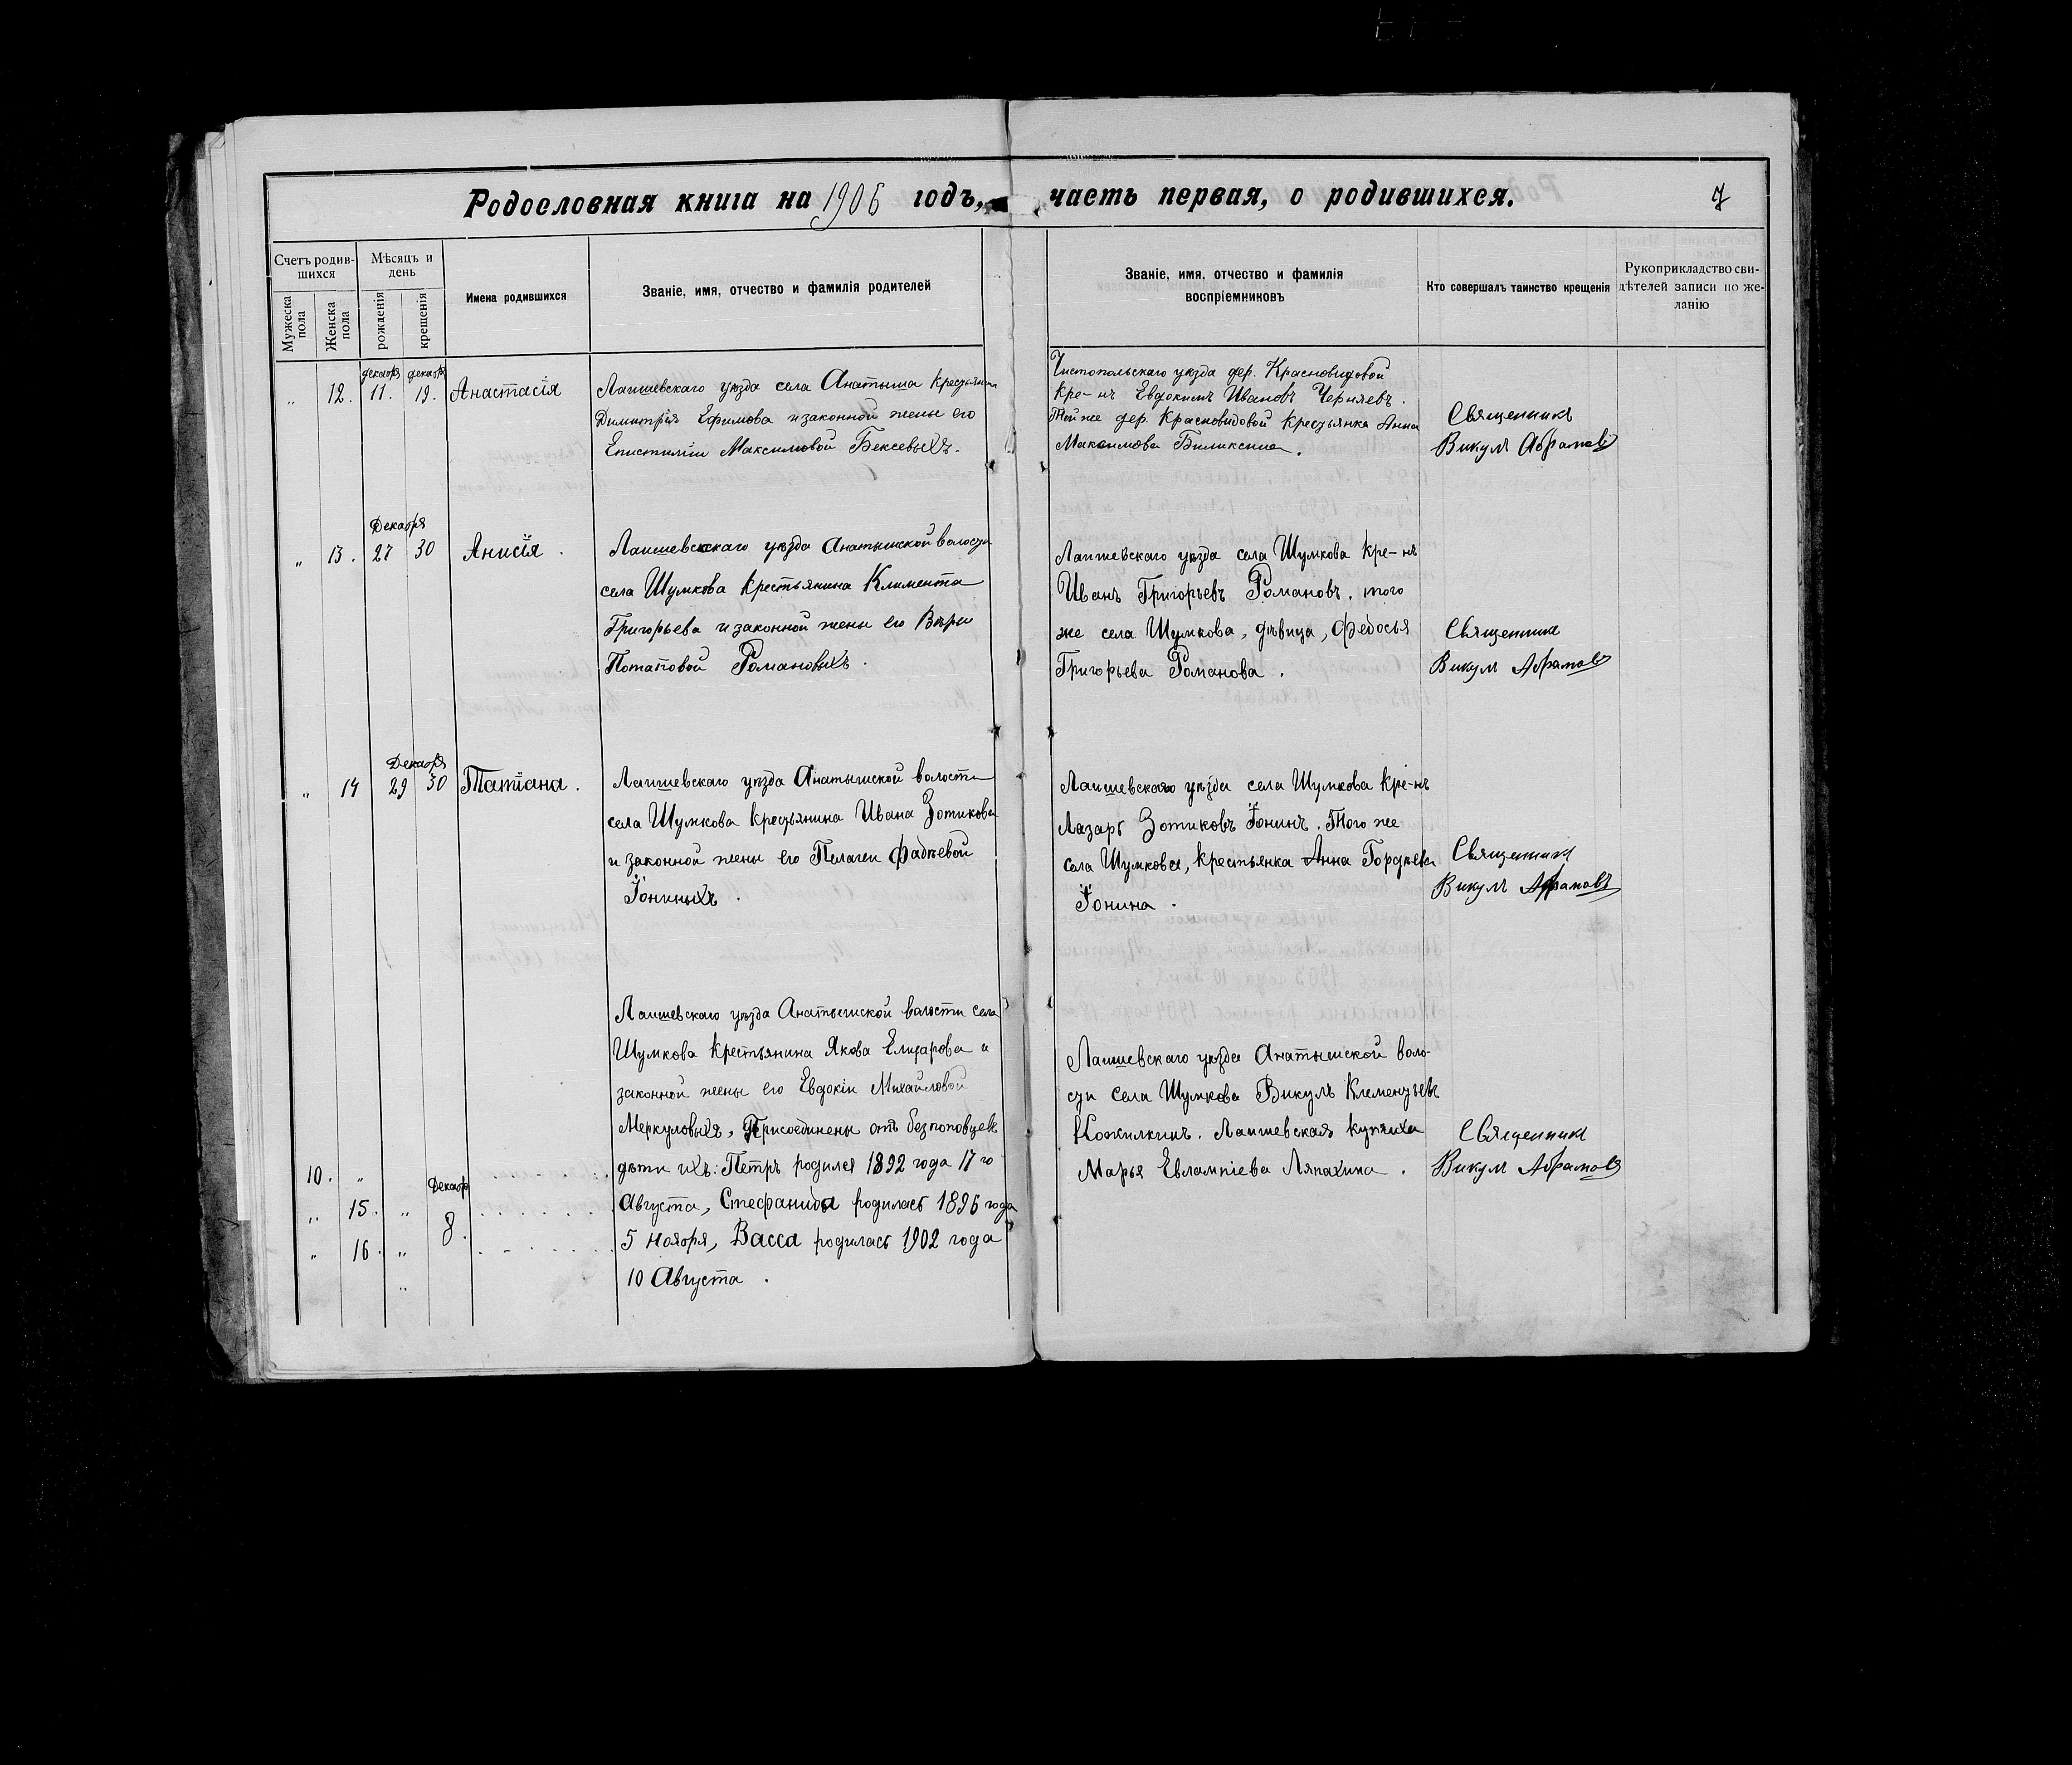 Родословная книга на 1906 годъ, часть первая, о родившихся.
7
Счетъ родив-
шихся
Мѣсяцъ и
день
Мужеска
пола
Женска
пола
рожденія
крещенія
Имена родившихся
Званіе, имя, отчество и фамилія родителей
Званіе, имя, отчество и фамилія
воспріемниковъ
Кто совершалъ таинство крещенія
Рукоприкладство сви-
дѣтелей записи по же-
ланію
декабря декабря
„ 12. 11. 19. Анастасія
Лаишевскаго уѣзда села Анатыша Крестьянина
Димитрія Ефимова и законной жены его
Епистиміи Максимовой Бексевыхъ.
Чистопольскаго уѣзда дер. Красновидовой
Кре-нъ Евдокимъ Ивановъ Черняевъ.
Той же дер. Красновидовой Крестьянка Анна
Максимова
Священникъ
Викулъ Абрамовъ
Декабря
„ 13. 27 30 Анисія.
Лаишевскаго уѣзда Анатышской волости
села Шумкова Крестьянина Климента
Григорьева и законной жены его Вѣры
Потаповой Романовыхъ.
Лаишевскаго уѣзда села Шумкова Кре-нъ
Иванъ Григорьевъ Романовъ. того
же села Шумкова, дѣвица, Федосья
Григорьева Романова.
Священникъ
Викулъ Абрамовъ
Декабря
„ 14 29 30 Татіана.
Лаишевскаго уѣзда Анатышской волости
села Шумкова Крестьянина Ивана Зотикова
и законной жены его Пелагеи Фадѣевой
Іониныхъ.
Лаишевскаго уѣзда села Шумкова Кре-нъ
Лазарь Зотиковъ Іонинъ. Того же
села Шумкова, Крестьянка Анна Гордѣева
Іонина.
Священникъ
Викулъ Абрамовъ
Лаишевскаго уѣзда Анатышской волости села
Шумкова Крестьянина Якова Елизарова и
законной жены его Евдокіи Михайловой
Меркуловыхъ, Присоединены отъ безпоповцевъ
10. „ дѣти ихъ: Петръ родился 1892 года 17 го
Декабр
„ 15. „ Августа, Стефанида родилась 1896 года
8.
„ 16. „ 5 Ноября, Васса родилась 1902 года
„ 10 Августа.
Лаишевскаго уѣзда Анатышской воло-
сти села Шумкова Викулъ Клементьевъ
Кожилкинъ. Лаишевская купчиха
Марья Евлампіева Ляпахина.
Священникъ
Викулъ Абрамовъ